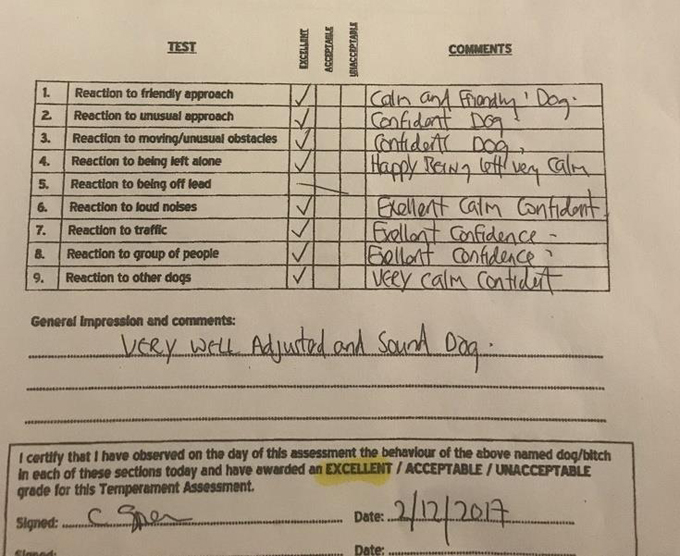 TEST EXCELLENT ACCEPTABLE UNACCEPTABLE COMMENTS
1. Reaction to friendly approach ✓ Calm and Friendly Dog.
2. Reaction to unusual approach ✓ Confident Dog
3. Reaction to moving/unusual obstacles ✓ Confident Dog,
4. Reaction to being left alone ✓ Happy Being left very Calm
5. Reaction to being off lead
6. Reaction to loud noises ✓ Exellent Calm Confident
7. Reaction to traffic ✓ Exellent Confidence -
8. Reaction to group of people ✓ Exellent Confidence
9. Reaction to other dogs ✓ VERY CALM Confident
General Impression and comments:
VERY WELL Adjusted and Sound Dog.
I certify that I have observed on the day of this assessment the behaviour of the above named dog/bitch
in each of these sections today and have awarded an EXCELLENT / ACCEPTABLE / UNACCEPTABLE
grade for this Temperament Assessment.
Signed: C Date: 2/12/2017
Signed: Date: